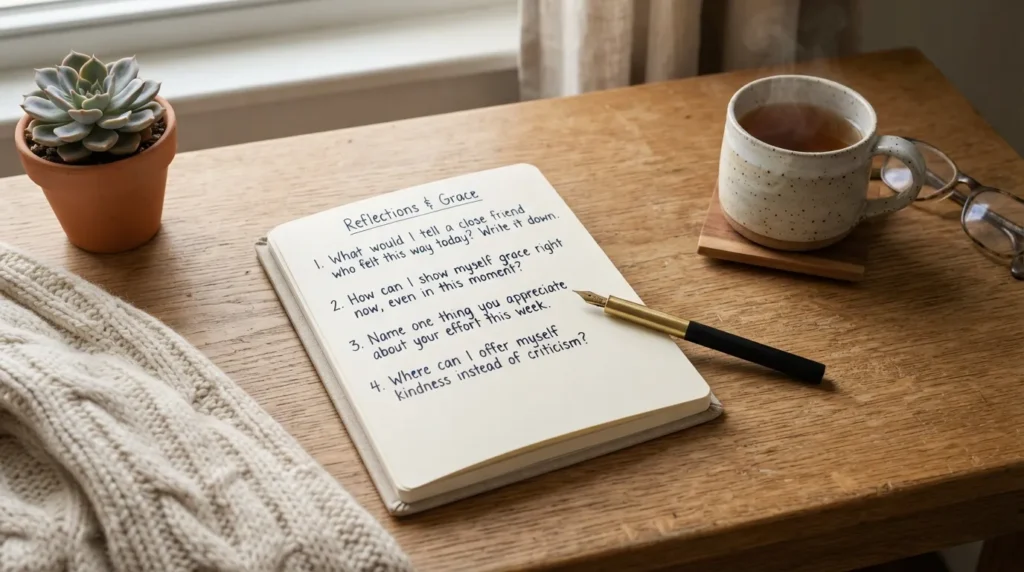 Reflections & Grace
1. What would I tell a close friend
who felt this way today? Write it down.
2. How can I show myself grace right
now, even in this moment?
3. Name one thing you appreciate
about your effort this week.
4. Where can I offer myself
kindness instead of criticism?